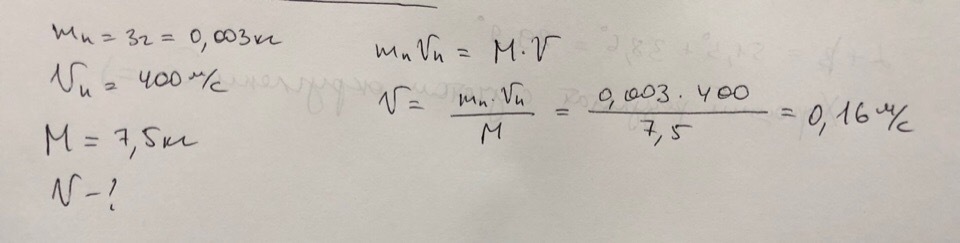 mп = 3г = 0,003кг
Vп = 400 м/с
M = 7,5кг
V - ?
mпVп = M·V
V = mп·Vп / M = 0,003·400 / 7,5 = 0,16 м/с